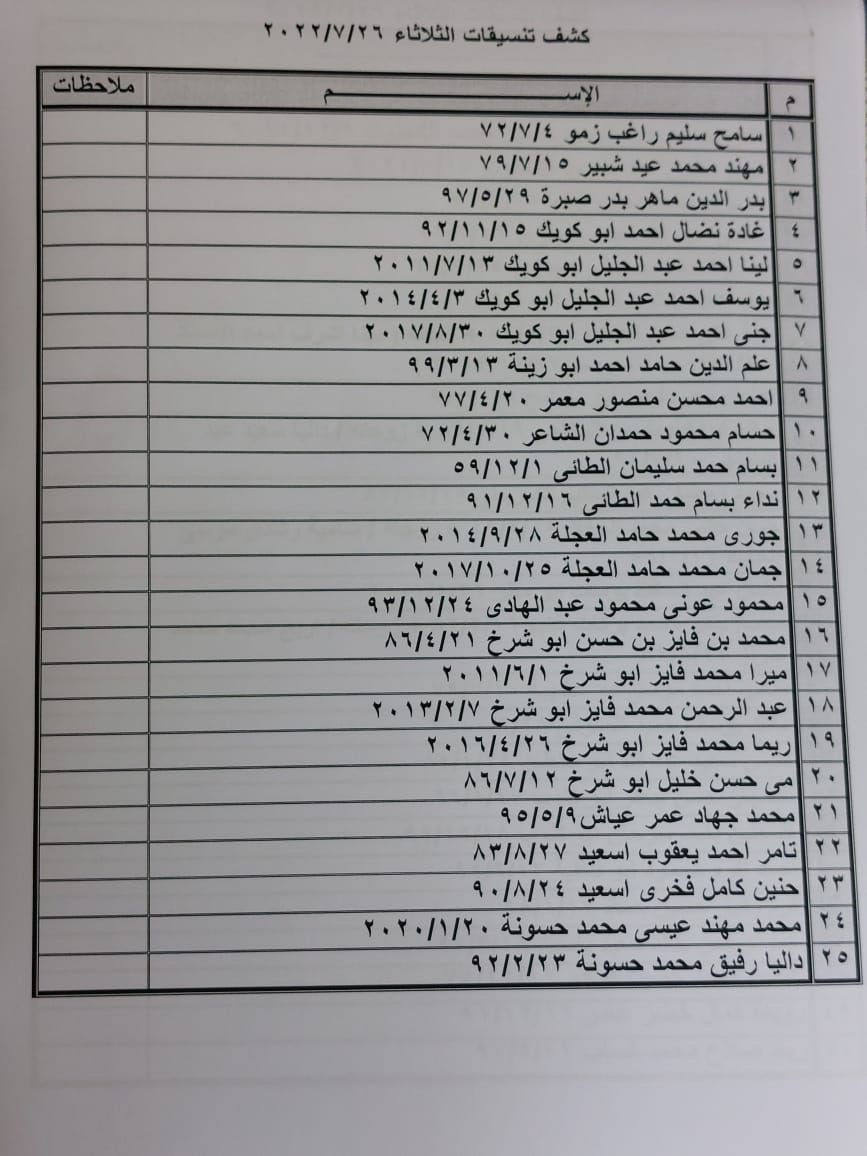 كشف تنسيقات الثلاثاء ٢٠٢٢/٧/٢٦
م الإســـــــــم ملاحظات
١ سامح سليم راغب زمو ٧٢/٧/٤
٢ مهند محمد عيد شبير ٧٩/٧/١٥
٣ بدر الدين ماهر بدر صبرة ٩٧/٥/٢٩
٤ غادة نضال احمد ابو كويك ٩٢/١١/١٥
٥ لينا احمد عبد الجليل ابو كويك ٢٠١١/٧/١٣
٦ يوسف احمد عبد الجليل ابو كويك ٢٠١٤/٤/٣
٧ جنى احمد عبد الجليل ابو كويك ٢٠١٧/٨/٣٠
٨ علم الدين حامد احمد ابو زينة ٩٩/٣/١٣
٩ احمد محسن منصور معمر ٧٧/٤/٢٠
١٠ حسام محمود حمدان الشاعر ٧٢/٤/٣٠
١١ بسام حمد سليمان الطائى ٥٩/١٢/١
١٢ نداء بسام حمد الطائى ٩١/١٢/١٦
١٣ جورى محمد حامد العجلة ٢٠١٤/٩/٢٨
١٤ جمان محمد حامد العجلة ٢٠١٧/١٠/٢٥
١٥ محمود عونى محمود عبد الهادى ٩٣/١٢/٢٤
١٦ محمد بن فايز بن حسن ابو شرخ ٨٦/٤/٢١
١٧ ميرا محمد فايز ابو شرخ ٢٠١١/٦/١
١٨ عبد الرحمن محمد فايز ابو شرخ ٢٠١٣/٢/٧
١٩ ريما محمد فايز ابو شرخ ٢٠١٦/٤/٢٦
٢٠ مى حسن خليل ابو شرخ ٨٦/٧/١٢
٢١ محمد جهاد عمر عياش ٩٥/٥/٩
٢٢ تامر احمد يعقوب اسعيد ٨٣/٨/٢٧
٢٣ حنين كامل فخرى اسعيد ٩٠/٨/٢٤
٢٤ محمد مهند عيسى محمد حسونة ٢٠٢٠/١/٢٠
٢٥ داليا رفيق محمد حسونة ٩٢/٢/٢٣